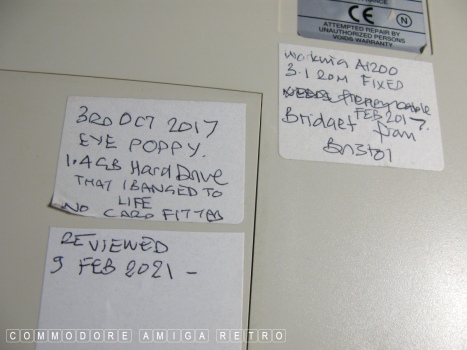 CE N
ATTEMPTED REPAIR BY
UNAUTHORIZED PERSONS
VOIDS WARRANTY
Working A1200
3.1 ROM FIXED
NEEDS Floppy cable
FEB 2017.
Bridget from
Bristol
3RD OCT 2017
EYE POPPY.
1.4GB Hard Drive
THAT I BANGED TO
LIFE
NO CARD FITTED
REVIEWED
9 FEB 2021 -
COMMODORE AMIGA RETRO